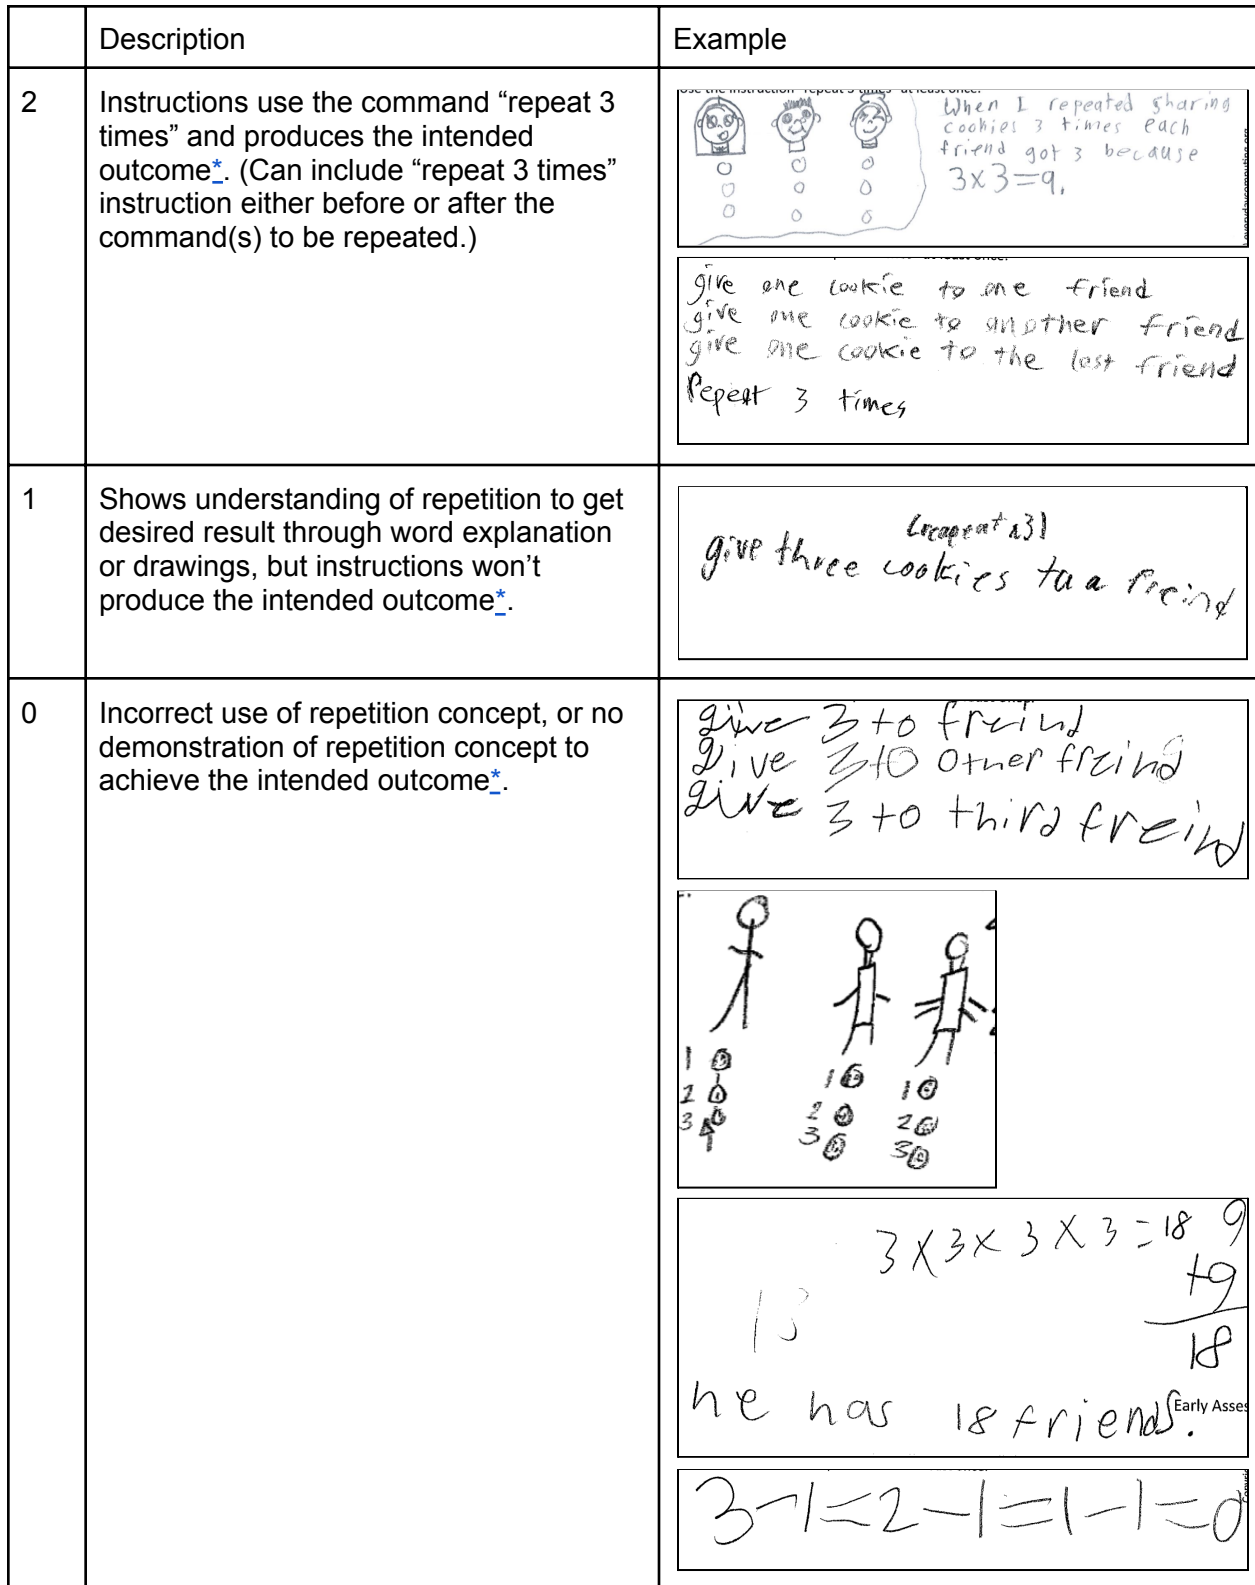 Description
Example
2
Instructions use the command “repeat 3
times” and produces the intended
outcome*. (Can include “repeat 3 times”
instruction either before or after the
command(s) to be repeated.)
When I repeated sharing
cookies 3 times each
friend got 3 because
3x3=9.
give one cookie to one friend
give one cookie to another friend
give one cookie to the last friend
Repeat 3 times
1
Shows understanding of repetition to get
desired result through word explanation
or drawings, but instructions won’t
produce the intended outcome*.
give three cookies to a freind
0
Incorrect use of repetition concept, or no
demonstration of repetition concept to
achieve the intended outcome*.
give 3 to freind
give 3 to other freind
give 3 to third freind
1 1 1
2 2 2
3 3 3
3 X 3 X 3 X 3 = 18
9
+9
18
13
he has 18 friends.
Early Asses
3-1=2-1=1-1=0